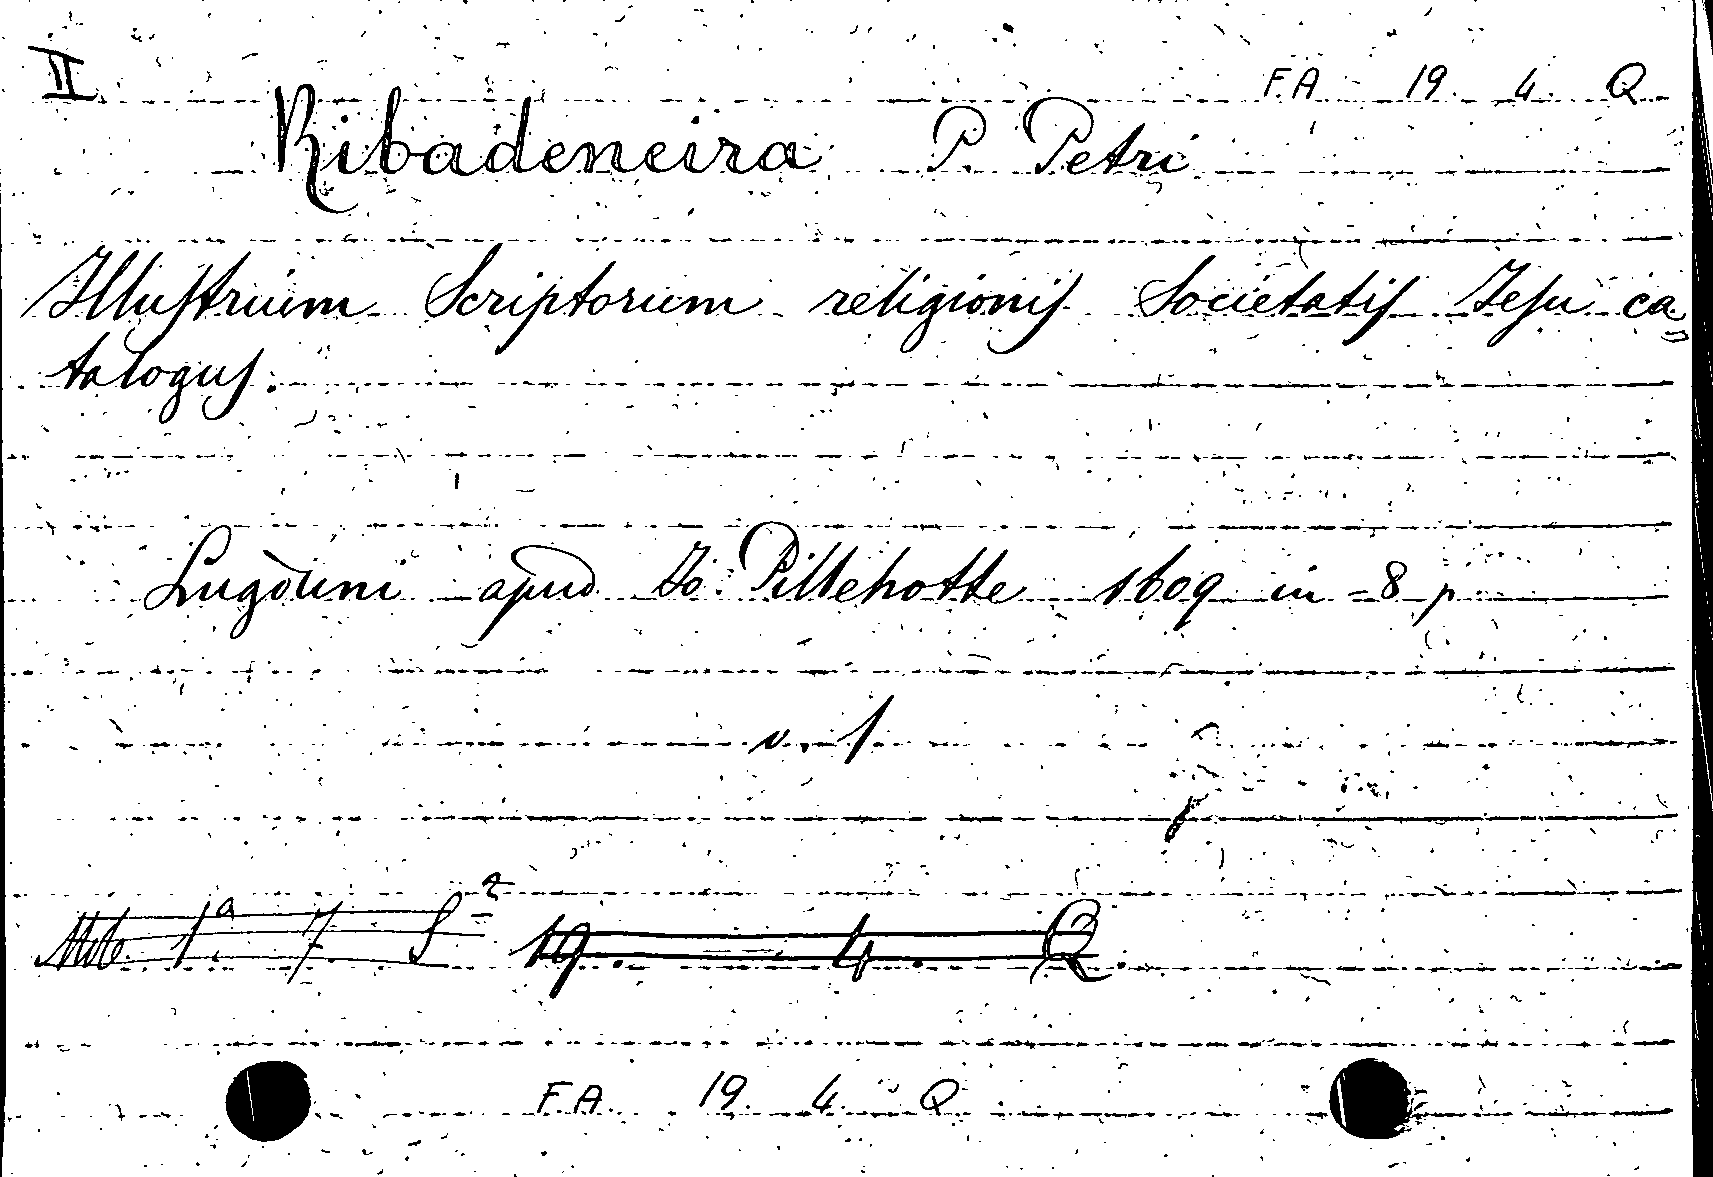 II
F.A 19. 4. Q
Ribadeneira P. Petri
Illustrium Scriptorum religionis Societatis Jesu ca=
talogus.
Lugduni apud Jo: Pillehotte 1609 in =8 p
v. 1
1.a 7. S 2 19. 4. Q.
F.A. 19. 4. Q